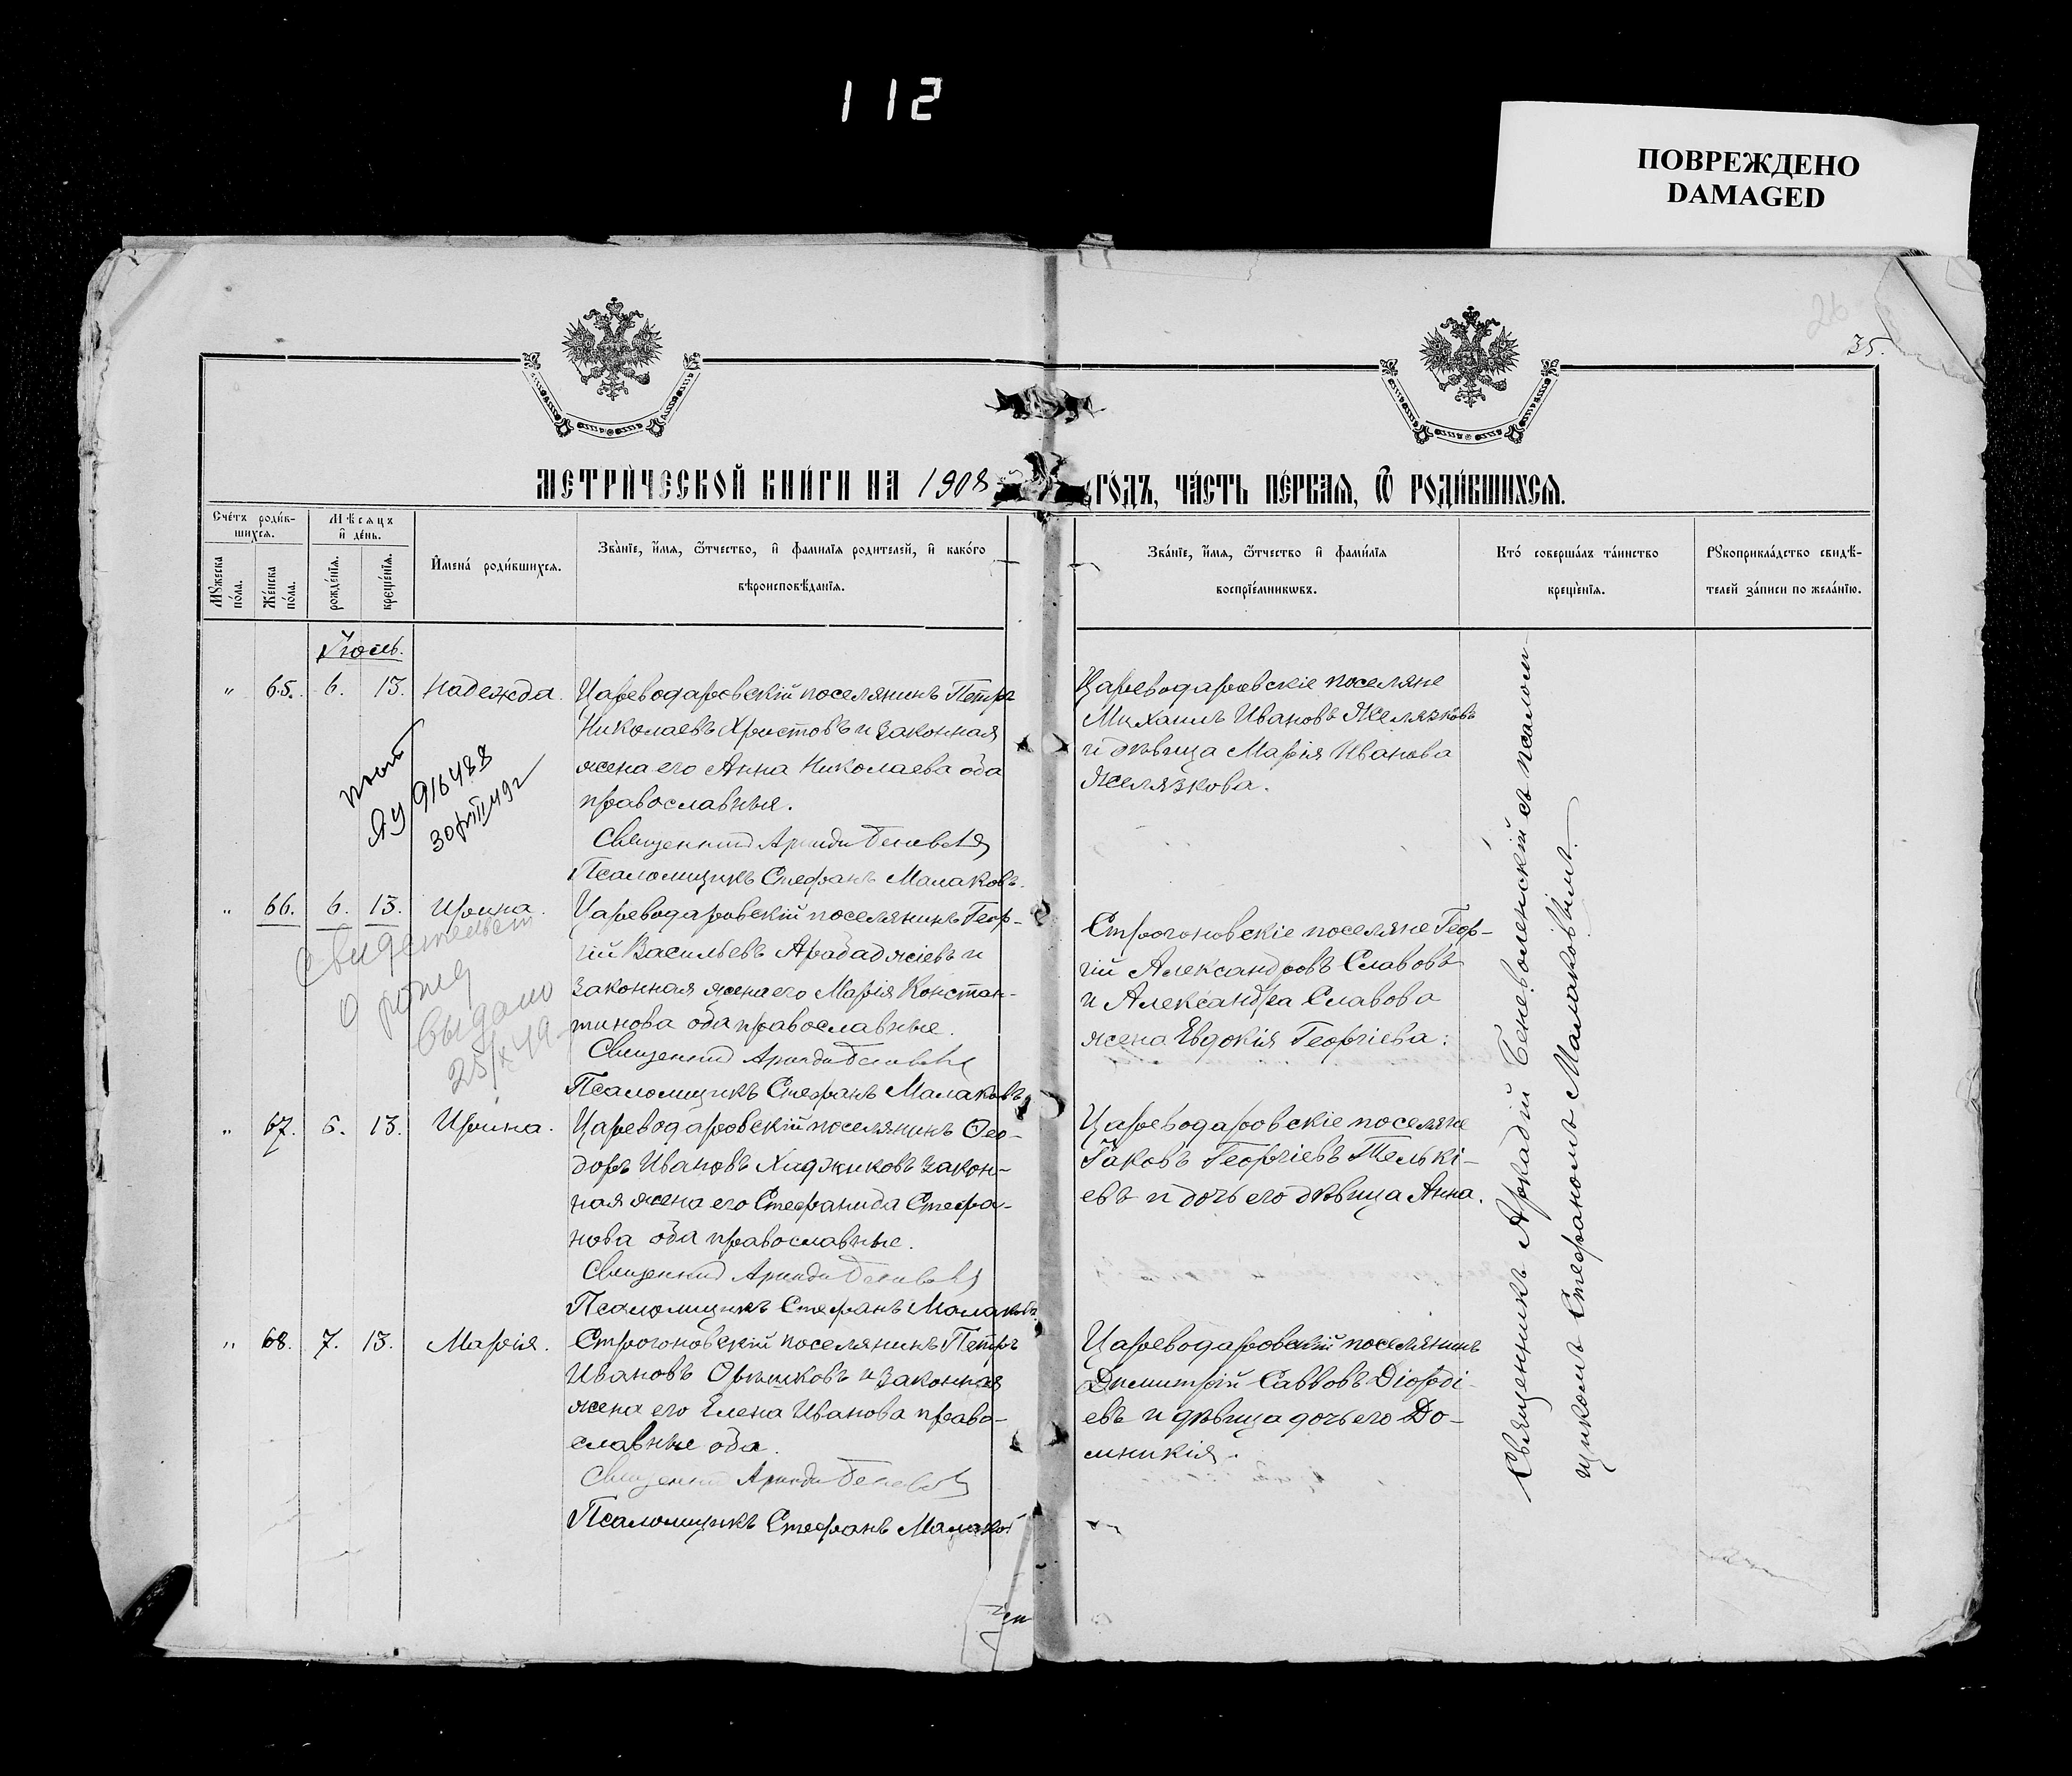 112
ПОВРЕЖДЕНО
DAMAGED
26
35.
МЕТРИ́ЧЕСКОЙ КНИ́ГИ НА 1908 ГО́ДЪ, ЧА́СТЬ ПЕ́РВАѦ, Ѿ РОДИ́ВШИХСѦ.
Счётъ роди́в-
шихсѧ.
Мꙋ́жеска по́ла.
Же́нска по́ла.
Мѣ́сѧцъ
и҆ де́нь.
рожде́нїѧ.
креще́нїѧ.
И҆мена̀ роди́вшихсѧ.
Зва́нїе, и҆́мѧ, ѻ҆́тчество, и҆ фамилїѧ родителей, и҆ како́го
вѣроисповѣ́данїѧ.
Зва́нїе, и҆́мѧ, ѻ҆́тчество и҆ фами́лїѧ
воспрїе́мникѡвъ.
Кто́ соверша́лъ та́инство
креще́нїѧ.
Рꙋкоприкла́дство свидѣ́-
телей за́писи по жела́нїю.
Іюль.
" 65. 6. 13. Надежда.
Цареводаровскій поселянинъ Петръ
Николаевъ Христовъ и законная
жена его Анна Николаева оба
православныя.
Священник Аркадий
Псаломщикъ Стефанъ Малаковъ.
Цареводаровскіе поселяне
Михаилъ Ивановъ Желязковъ
и дѣвица Марія Иванова
Желязкова.
ЯУ 916488
30/VIII 49 г
" 66. 6. 13. Ирина.
Цареводаровскій поселянинъ Геор-
гій Васильевъ Арабаджіевъ и
законная жена его Марія Констан-
тинова оба православные.
Священник Аркадий
Псаломщикъ Стефанъ Малаковъ
Строгоновскіе поселяне Геор-
гій Александровъ Славовъ
и Александра Славова
жена Евдокія Георгіева:
Свидетельст
о рожд
выдано
25/X 49
" 67. 6. 13. Ирина.
Цареводаровскій поселянинъ Ѳео-
доръ Ивановъ Хаджиковъ закон-
ная жена его Стефанида Стефа-
нова оба православные.
Священник Аркадий
Псаломщикъ Стефанъ Малаковъ
Цареводаровскіе поселяне
Іаковъ Георгіевъ Телькі-
евъ и дочь его дѣвица Анна.
" 68. 7. 13. Марія.
Строгоновскій поселянинъ Петръ
Ивановъ Орѣшковъ и законная
жена его Елена Иванова право-
славные оба.
Священник Аркадий
Псаломщикъ Стефанъ Малаков
Цареводаровскій поселянинъ
Димитрій Саввовъ Діорді-
евъ и дѣвица дочь его До-
мникія.
Священникъ Аркадій Беневоленскій съ псалом-
щикомъ Стефаномъ Малаковымъ.